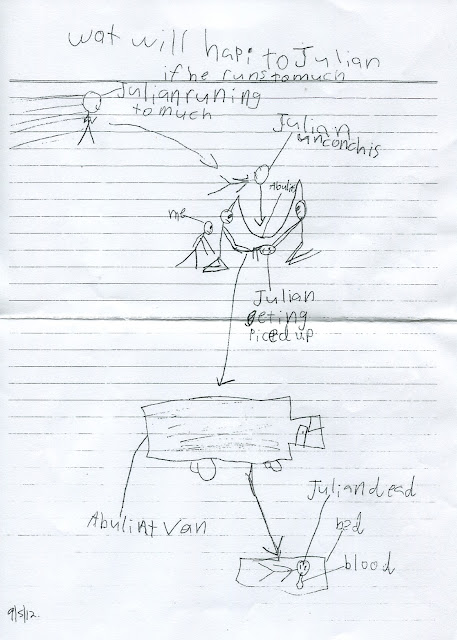 wat will hapi to Julian
if he runs to much
Julian runing
to much
Julian
unconchis
Abulint
me
Julian
geting
piced up
Abulint van
Julian dead
bed
blood
9/5/12